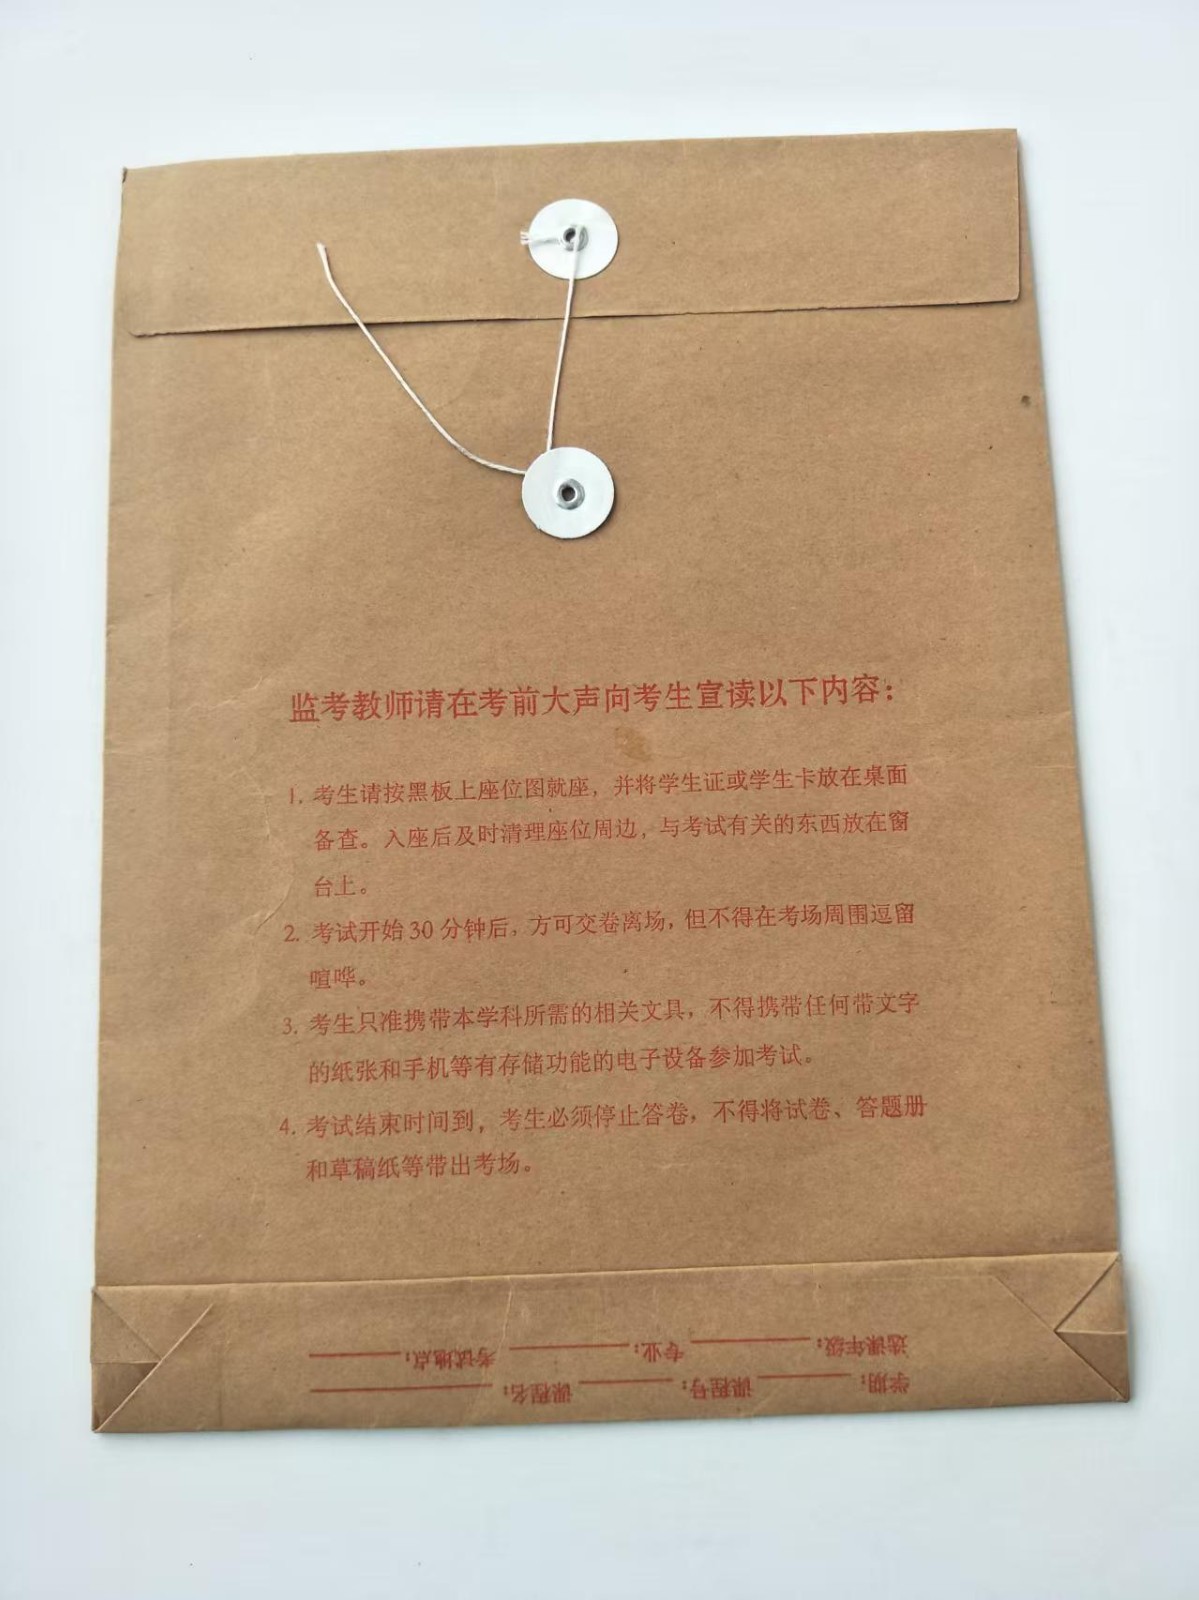 监考教师请在考前大声向考生宣读以下内容：
1. 考生请按黑板上座位图就座，并将学生证或学生卡放在桌面
备查。入座后及时清理座位周边，与考试有关的东西放在窗
台上。
2. 考试开始30分钟后，方可交卷离场，但不得在考场周围逗留
喧哗。
3. 考生只准携带本学科所需的相关文具，不得携带任何带文字
的纸张和手机等有存储功能的电子设备参加考试。
4. 考试结束时间到，考生必须停止答卷，不得将试卷、答题册
和草稿纸等带出考场。
学期：________ 课程号：________ 课程名：________
选课年级：________ 专业：________ 考试地点：________